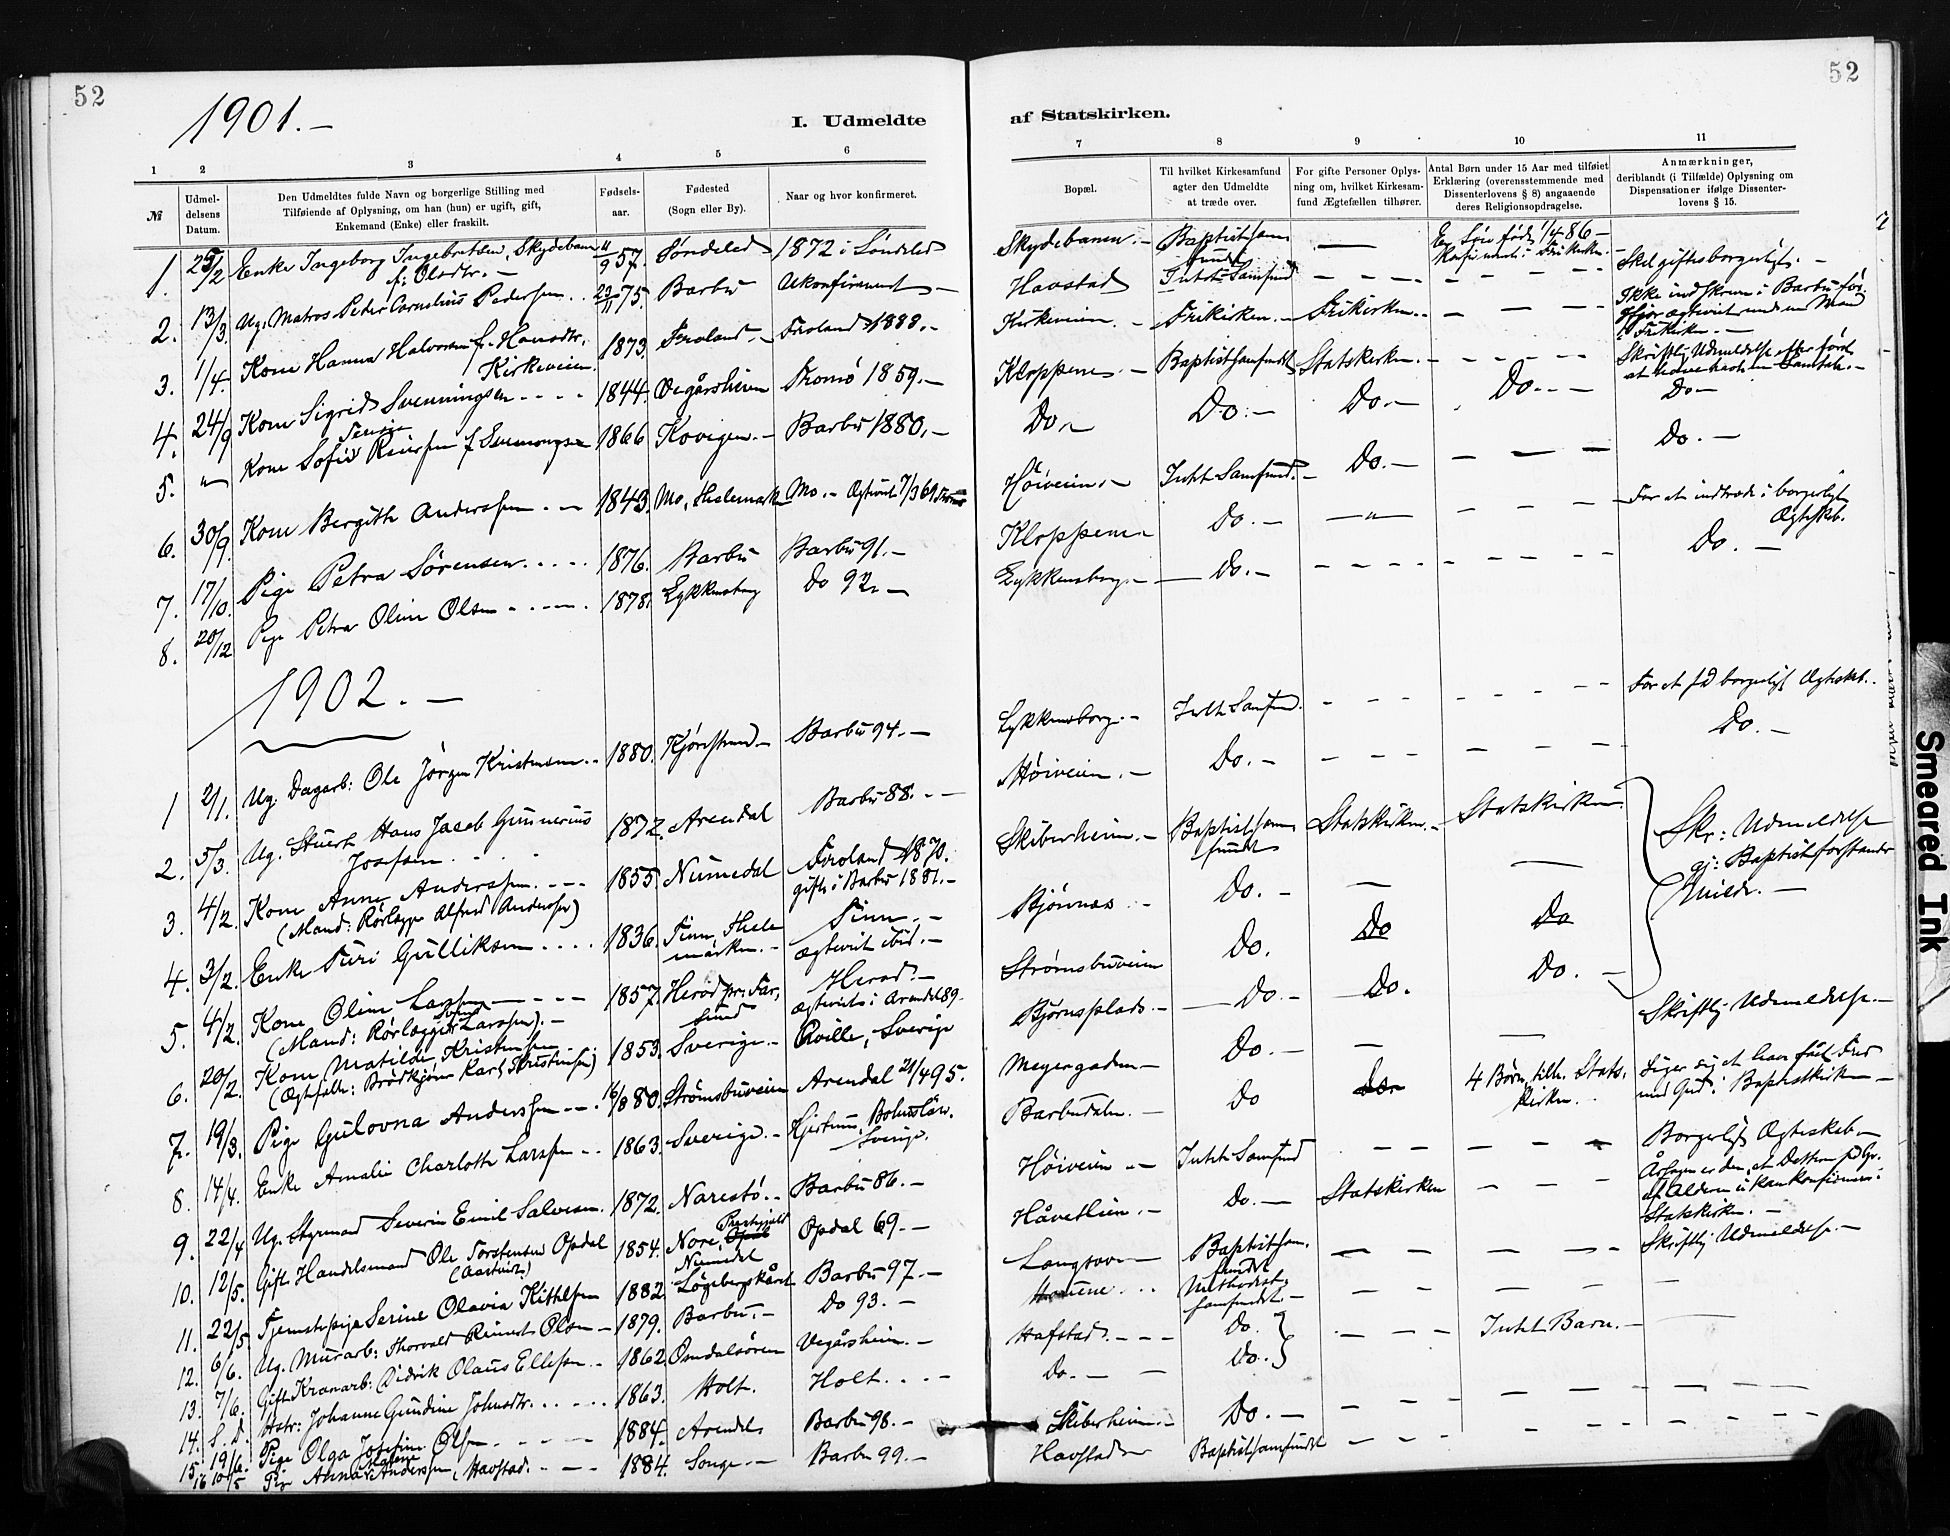 52
1901.—
I. Udmeldte
1 2 3 4 5 6
№
Udmeldelsens Datum.
Den Udmeldtes fulde Navn og borgerlige Stilling med
Tilføiende af Oplysning, om han (hun) er ugift, gift,
Enkemand (Enke) eller fraskilt.
Fødselsaar.
Fødested
(Sogn eller By).
Naar og hvor konfirmeret.
1. 25/2 Enke Ingeborg Ingebretsen, Skydebanen 11/9 57. Søndeled 1872 i Søndeled
f. Olsdtr. —
2. 13/3. Ug. Matros Peder Cornelius Pedersen .. 23/11 75. Barbu Ukonfirmeret —
3. 1/4. Kone Hanna Halvorsen f. Hansdtr. 1873. Froland.— Froland 1888.—
Kirkeveien.
4. 24/9 Kone Sigrid Svenningsen - - - - 1844. Vegårsheien Tromø 1859.—
5. " Kone Sofie Reiersen f. Svenningsen 1866 Barbu 1880.—
6. 30/9. Kone Bergith Anderssen - - - 1843. Mo, Thelemark Mo.— Ægteviet 7/3 69
7. 17/10. Pige Petra Sørensen..... 1876. Barbu Barbu 91.—
8. 20/12 Pige Petra Oline Olsen - - - - 1878. Lykkensborg Do 92.—
1902.—
1 2/1. Ug. Dagarb: Ole Jørgen Kristensen.. 1880. Barbu 94.—
2. 5/3. Ug. Stuert Hans Jacob Gunnerius 1872. Arendal Barbu 88.—
Josefsen . . .
3. 4/2. Kone Anne Anderssen. - - - 1855 Numedal Froland 1870.
(Mand: Rørlægger Alfred Anderssen) gifte i Barbu 1881.—
4. 3/2. Enke Turi Gulliksen.... 1836. Tinn, Thele- Tinn.—
marken.— ægteviet ibid.—
5. 4/2. Kone Oline Larssen - - - - 1857. Herød pr. Far- Herad.—
(Mand: Rørlægger Larssen).— sund ægteviet i Arendal 89.
6. 20/2. Kone Matilde Kristensen 1853. Sverige.— Qville, Sverige
(Ægtefælle: Brødkjører Karl Kristensen)
7. 19/3. Pige Gulovna Anderssen - - - 16/8 80. Strømsbuveien Arendal 21/4 95.
8. 14/4. Enke Amalie Charlotte Larssen - - 1863. Sverige.— Hjertum, Bohuslän.
Sverige.
9. 22/4 Ug. Styrmand Severin Emil Salvesen. 1872. Narestø.. Barbu 86.—
10. 12/5. Gift Handelsmand Ole Torstensen Opdal 1854. Nore, Præstegjeld Opdal 69.—
Numedal
11. 22/5 Tjenestepige Serine Olavia Kittelsen 1882 Barbu 97.—
12. 6/6. Ug. Murarb: Thorvald Olsen — 1879. Barbu.— Do 93.—
13. 7/6. Gift Kranarb: Didrik Olaus Ellefsen .. 1862 Omdalsøren Vegårsheien.—
14. S.d. Hstr: Johanne Gundine Johnsdtr...... 1863. Holt. Holt....—
15. 19/6. Pige Olga Josefine Olsen....— 1884. Arendal Barbu 98.—
16 10/5 Pige Anna Anderssen, Havstad.— 1884. Songe.— Barbu 99.—
52
af Statskirken.
7 8 9 10 11
Bopæl.
Til hvilket Kirkesamfund
agter den Udmeldte
at træde over.
For gifte Personer Oplysning om, hvilket Kirkesamfund Ægtefællen tilhører.
Antal Børn under 15 Aar med tilføiet
Erklæring (overensstemmende med
Dissenterlovens § 8) angaaende
deres Religionsopdragelse.
Anmærkninger,
deriblandt (i Tilfælde) Oplysning om
Dispensationer ifølge Dissenterlovens § 15.
Skydebanen.— Baptistsam- — En Søn født 1/4 86 —
fundet Konfirmeret i Frikirken.
Havstad Intet Samfund - - - - Skal giftes borgerligt.—
Kirkeveien.— Frikirken.— Frikirken.. — — — Ikke indskreven i Barbu før.
ægteviet med en Mand
i Frikirken.—
Kloppene.— Baptistsamfundet Statskirken.— - - - - Skriftlig Udmeldelse efter først
at have havt en Samtale.—
Do.— Do.— Do.— Do.— Do—
Høiveien.— Intet Samfund.— Do.— — — — Do.—
Kloppene— Do.— —"— - - - - For at indtræde i borgerligt
Ægteskab.
Lykkensborg.— Do.— - - - - Do.—
Lykkensborg.— Intet Samfund. - - - - For at få borgerligt Ægteskab..
Høiveien.— Do.— - - - - Do.—
Skiberheien.— Baptistsam- Statskirken.— Statskirken. Skr: Udmeldelse
fundet gj: Baptistforstander
Bjørnnæs.— Do.— — —
Strømsbuveien Do. Do Do
Bjørnsplads.— Do.— Do. Do.—
Meyergaden— Do.— — — Skriftlig Udmeldelse.—
Barbudalen.— Do 4 Børn, tilh. Stats- Siger sig at have fået Fred
kirken. med Gud i Baptistkirken —
Høiveien.— Intet Samfund — — — Borgerligt Ægteskab—
Håvetlien.— Do.— Statskirken - - - Årsagen er den, at Datteren på Gr.
af Alderen ei kan konfirmeres i
Statskirken.—
Langsæ— Baptistsam- — — — Skriftlig Udmeldelse.—
fundet
Methodist-
samfundet.—
Hafstad.— Do. } Intet Barn.—
Do.— Do. }
Skiberheien.— Do.—
Havstad— Baptistsamfundet
Smeared Ink